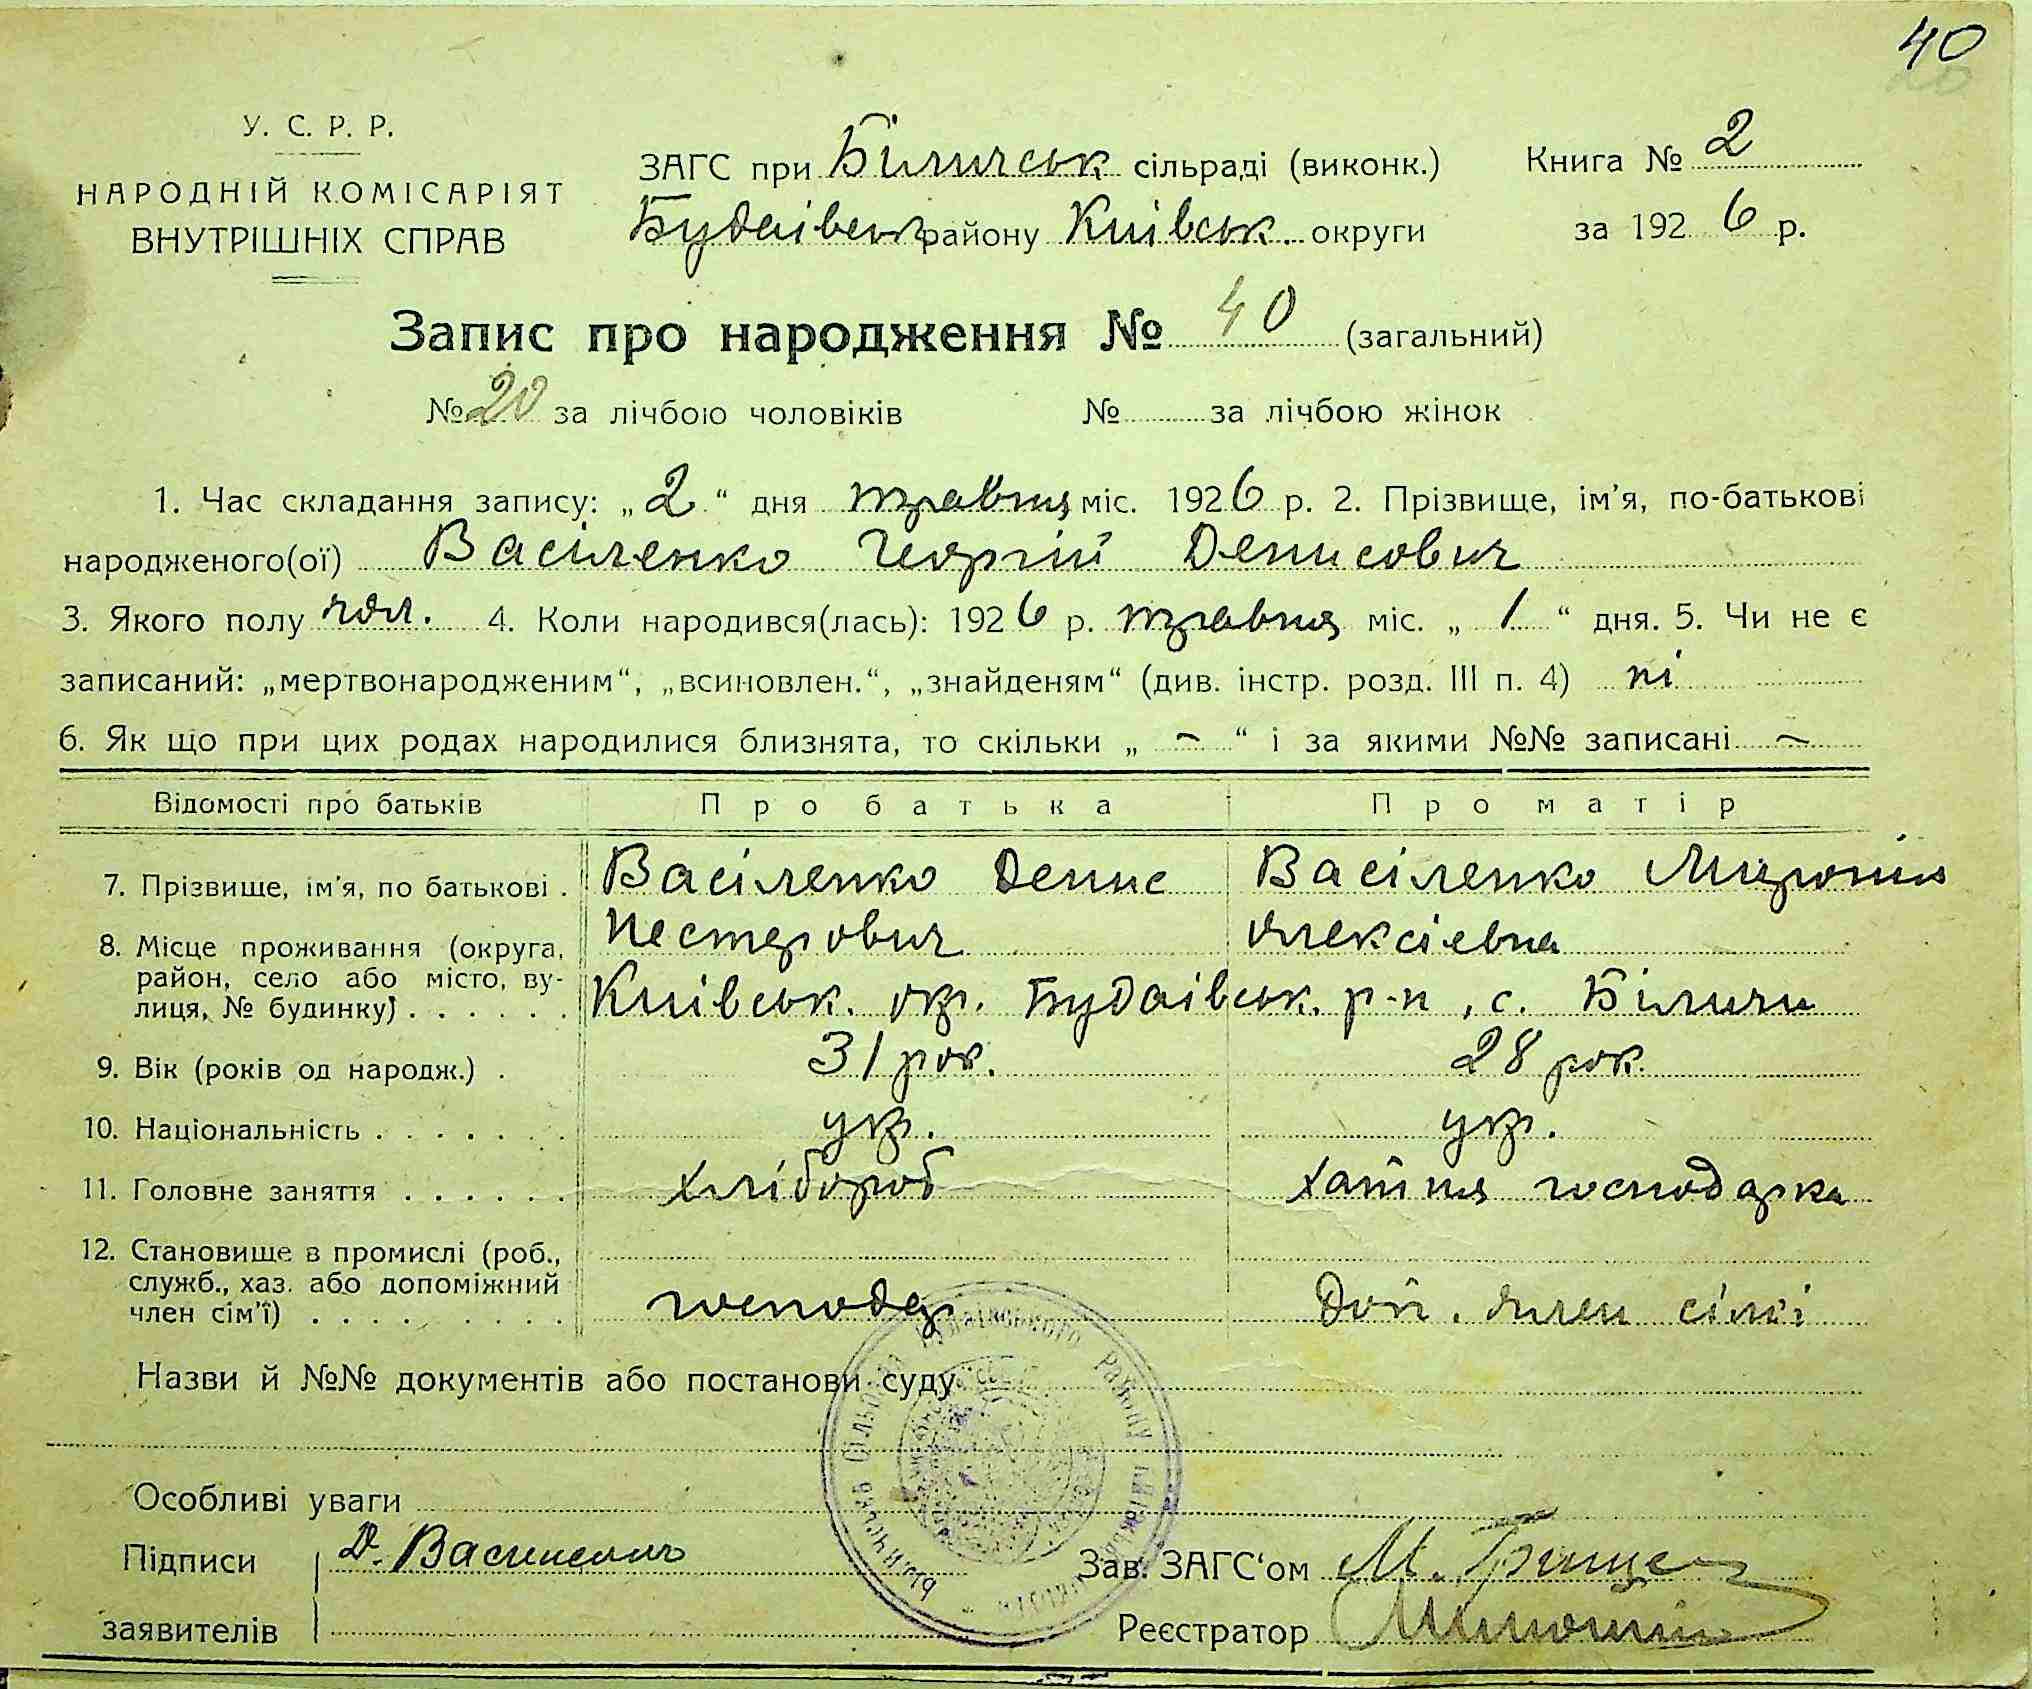 40
У. С. Р. Р.
НАРОДНІЙ КОМІСАРІЯТ
ВНУТРІШНІХ СПРАВ
ЗАГС при Білическ сільраді (виконк.)
Будаівськ району Київськ. округи
Книга № 2
за 1926 р.
Запис про народження № 40 (загальний)
№ 20 за лічбою чоловіків № за лічбою жінок
1. Час складання запису: „2“ дня травня міс. 1926 р. 2. Прізвище, ім'я, по-батькові
народженого(ої) Васіленко Георгій Денисович
3. Якого полу чол. 4. Коли народився(лась): 1926 р. травня міс. „1“ дня. 5. Чи не є
записаний: „мертвонародженим“, „всиновлен.“, „знайденям“ (див. інстр. розд. III п. 4) ні
6. Як що при цих родах народилися близнята, то скільки „ – “ і за якими №№ записані –
Відомості про батьків Про батька Про матір
7. Прізвище, ім'я, по батькові . Васіленко Денис Васіленко
Нестерович Алексієвна
8. Місце проживання (округа,
район, село або місто, ву-
лиця, № будинку) . . . . . . Київськ. окр. Будаівськ. р-н, с. Біличи
9. Вік (років од народж.) . 31 рок. 28 рок.
10. Національність . . . . . . . укр. укр.
11. Головне заняття . . . . . . хлібороб хатня господарка
12. Становище в промислі (роб.,
служб., хаз. або допоміжний
член сім'ї) . . . . . . . . . господар Доп. член сімї
Назви й №№ документів або постанови суду
Особливі уваги
Підписи Д. Василенко
заявителів
Зав. ЗАГС'ом М. Грищенко
Реєстратор